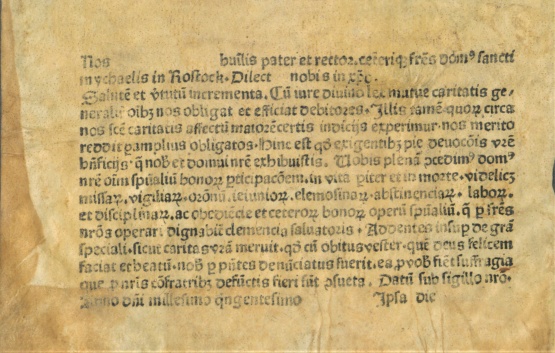 Nos humilis pater et rector. ceteriqꝫ frēs domꝰ sancti
mychaelis in Rostock. Dilect nobis in xp̄o.
Salutē et v̓tutū incrementa. Cū iure diuino lex mutue caritatis ge⸗
neralit̓ oībꝫ nos obligat et efficiat debitores. Illis tamē quoꝝ circa
nos sc̄e caritatis affectū maiorē certis indicijs experimur. nos merito
reddit p amplius obligatos. Hinc est qď exigentibꝫ pie deuocōis vr̄e
bn̄ficijs. q̄ nob̓ et domui nr̄e exhibuistis. Uobis plenā ꝯcedimꝰ domꝰ
nr̄e oīm sp̄ualiū bonoꝝ ꝑticipacōem. in vita piter et in morte. videlicꝫ
missaꝝ. vigiliaꝝ. orōnū. ieiunioꝝ. elemosinaꝝ. abstinenciaꝝ. laboꝝ.
et disciplinaꝝ. ac obediēcie et ceteroꝝ bonoꝝ operū sp̄ualiū. q̄ ꝑ fr̄es
nr̄os operari dignabit̓ clemencia saluatoris. Addentes insup de grā
speciali. sicut caritas vr̄a meruit. qď cū obitus vester. quē deus felicem
faciat et beatū. nob̓ ꝑ pn̄tes denūciatus fuerit. ea ꝓ vob̓ fiēt suffragia
que ꝓ nr̄is cōfratribꝫ defūctis fieri sūt ꝯsueta. Datū sub sigillo nr̄o.
Anno dn̄i millesimo qngentesimo Ipsa die